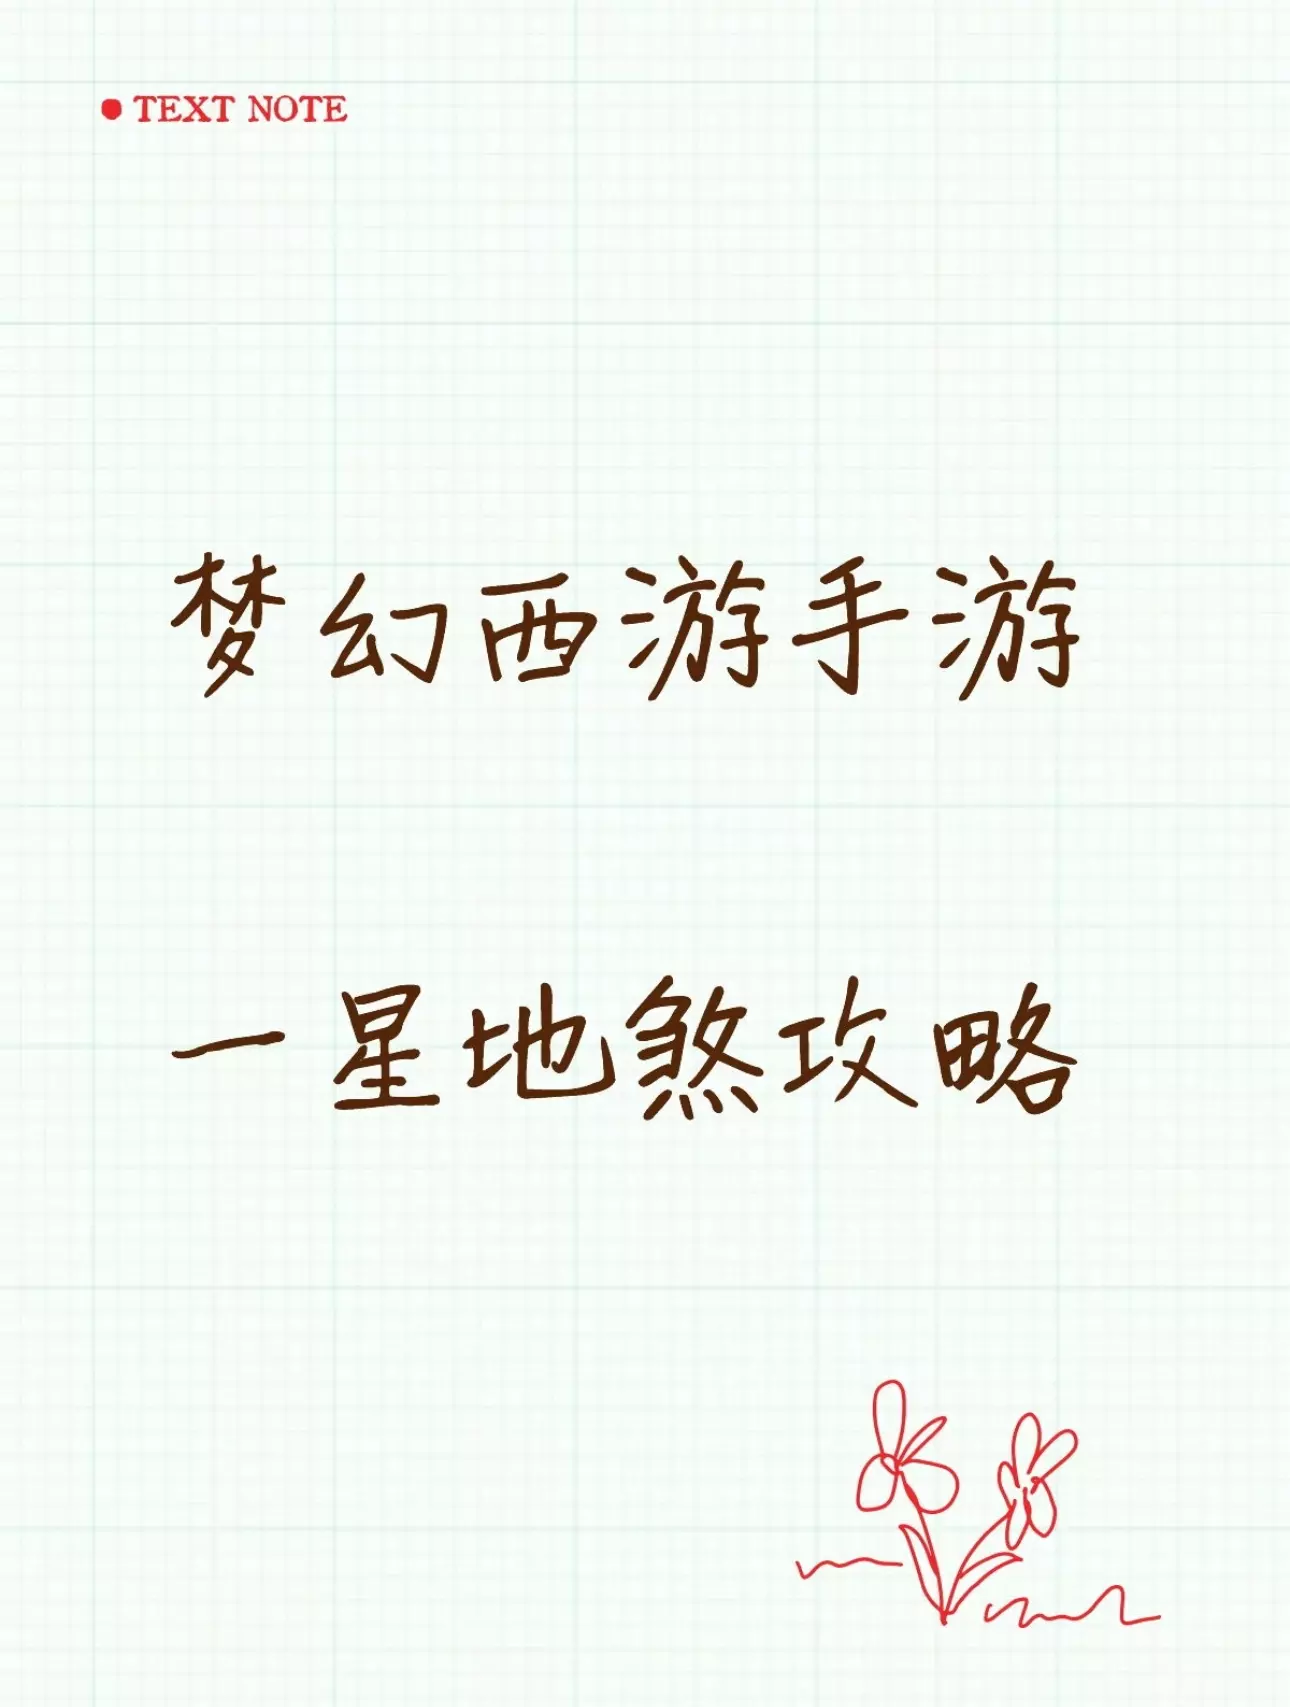 TEXT NOTE
梦幻西游手游
一星地煞攻略